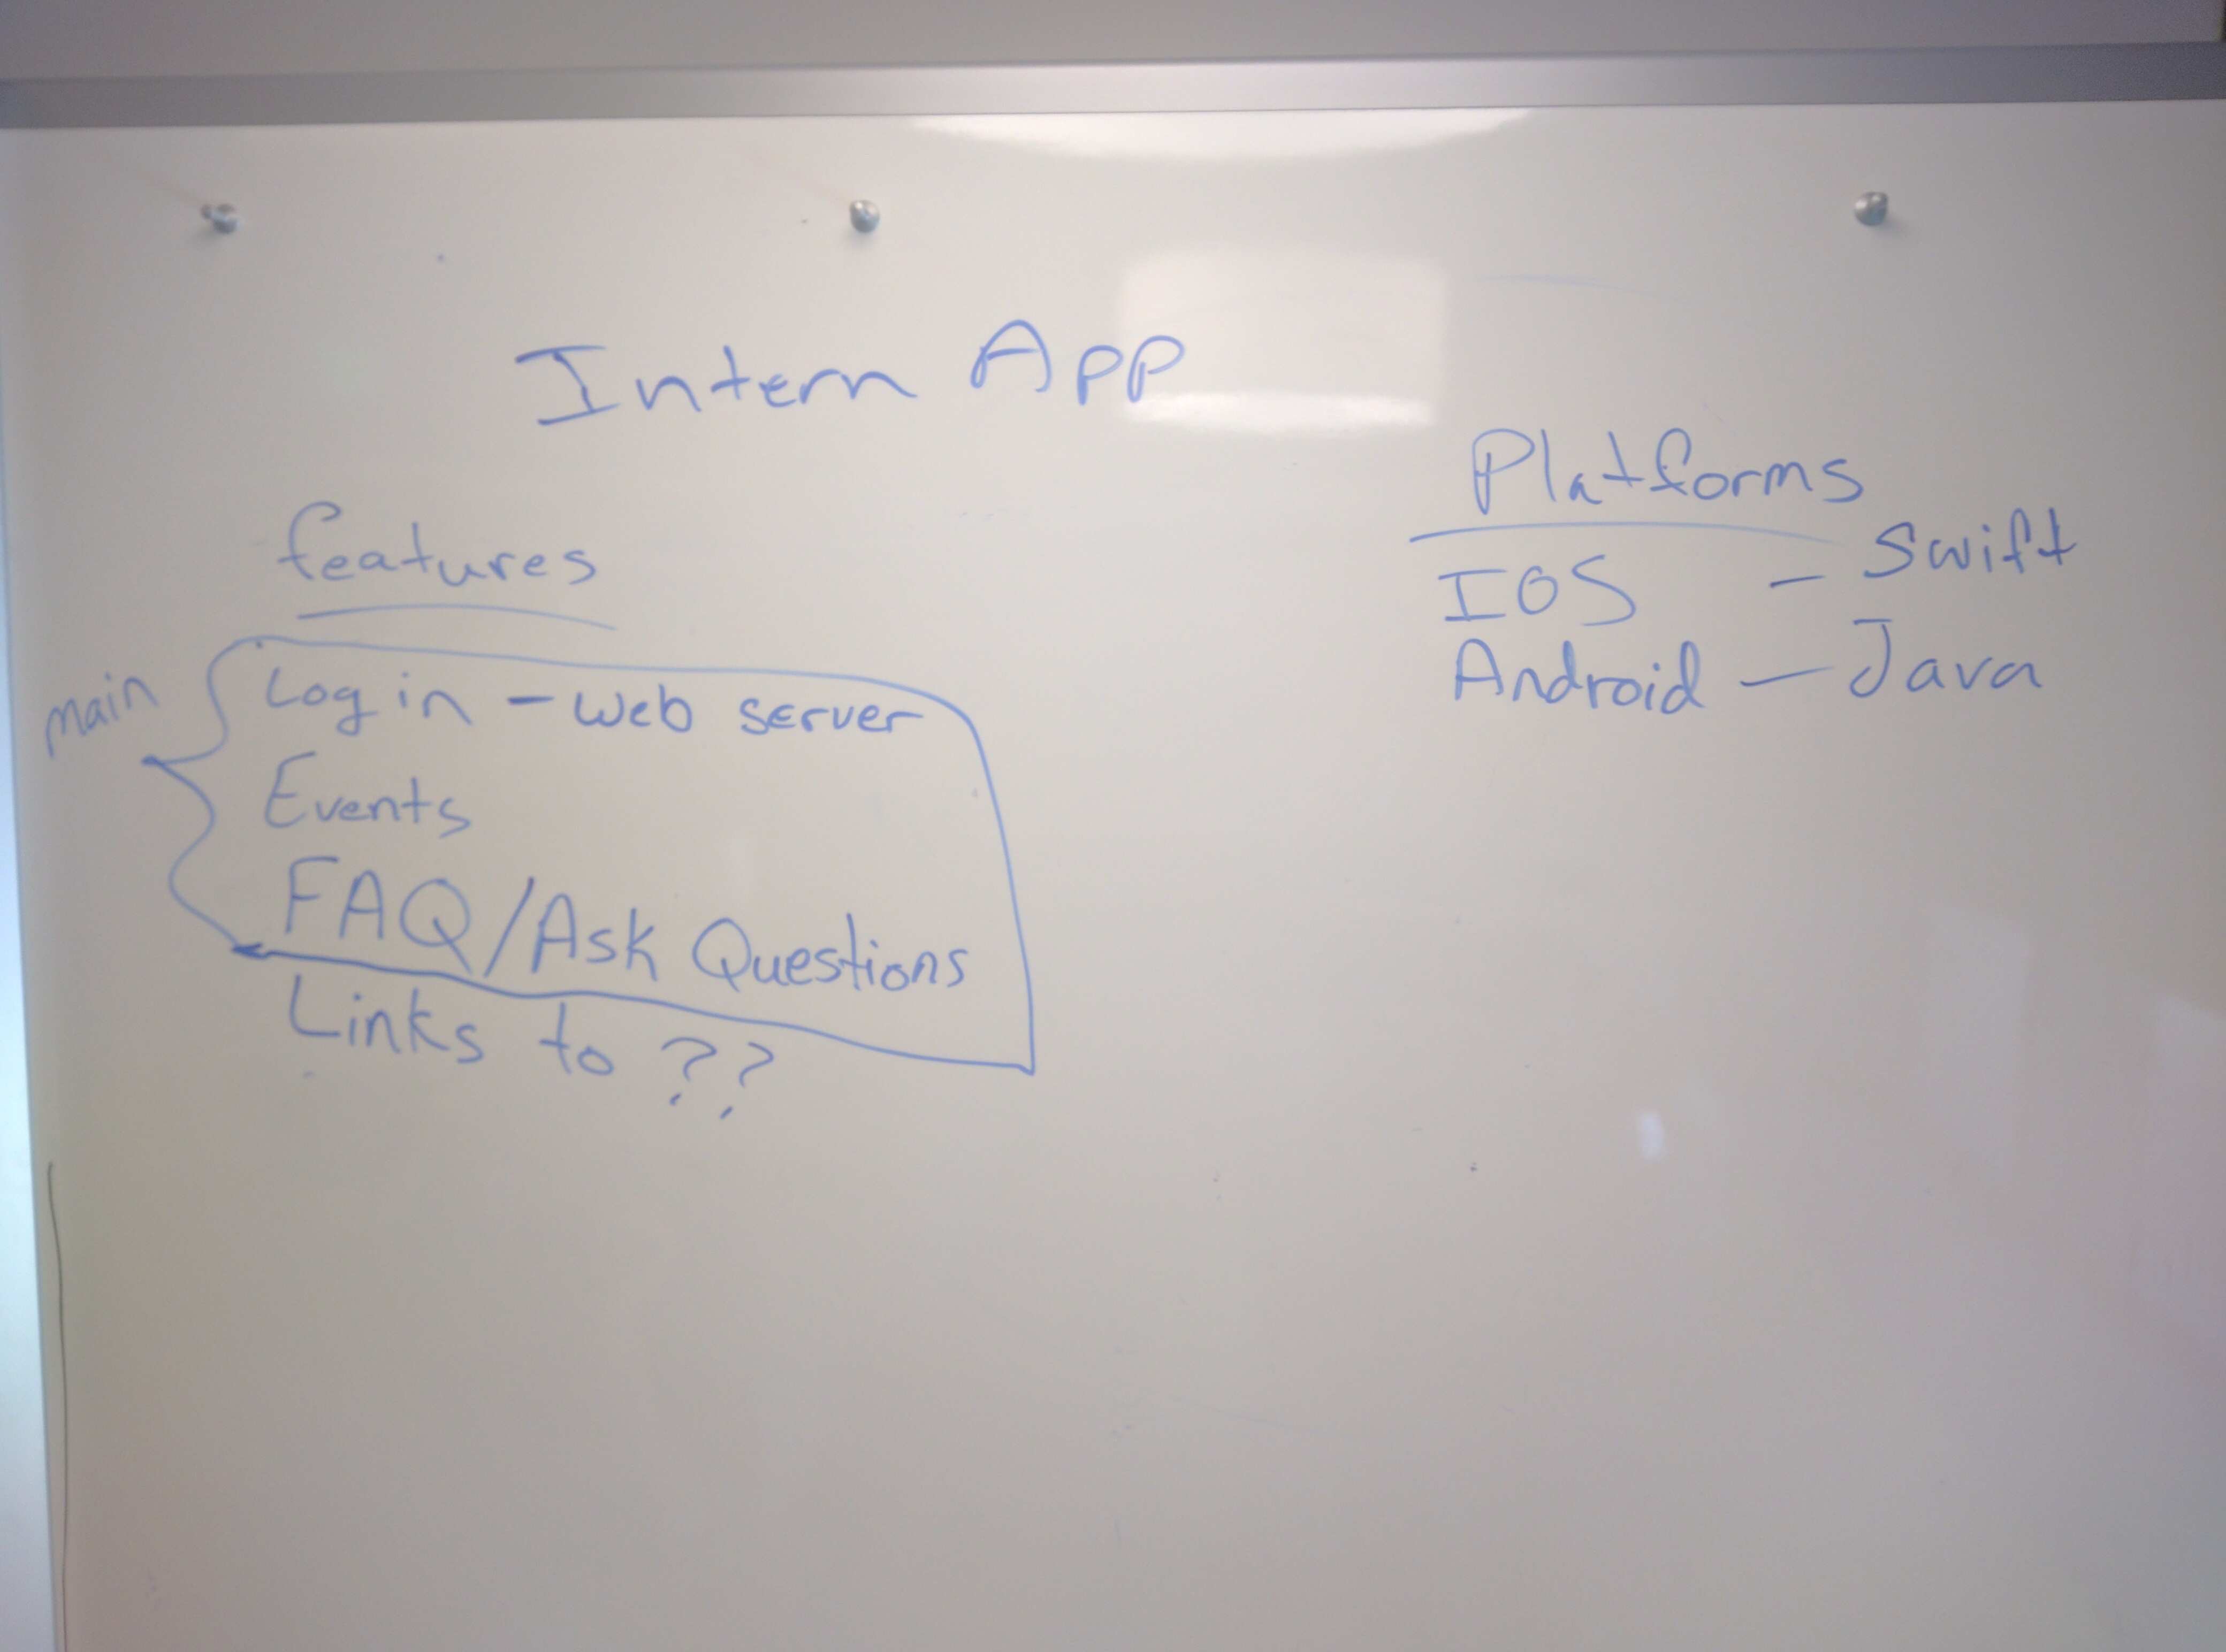 Intern App
features
main
Log in - Web server
Events
FAQ/Ask Questions
Links to ??
Platforms
IOS - Swift
Android - Java